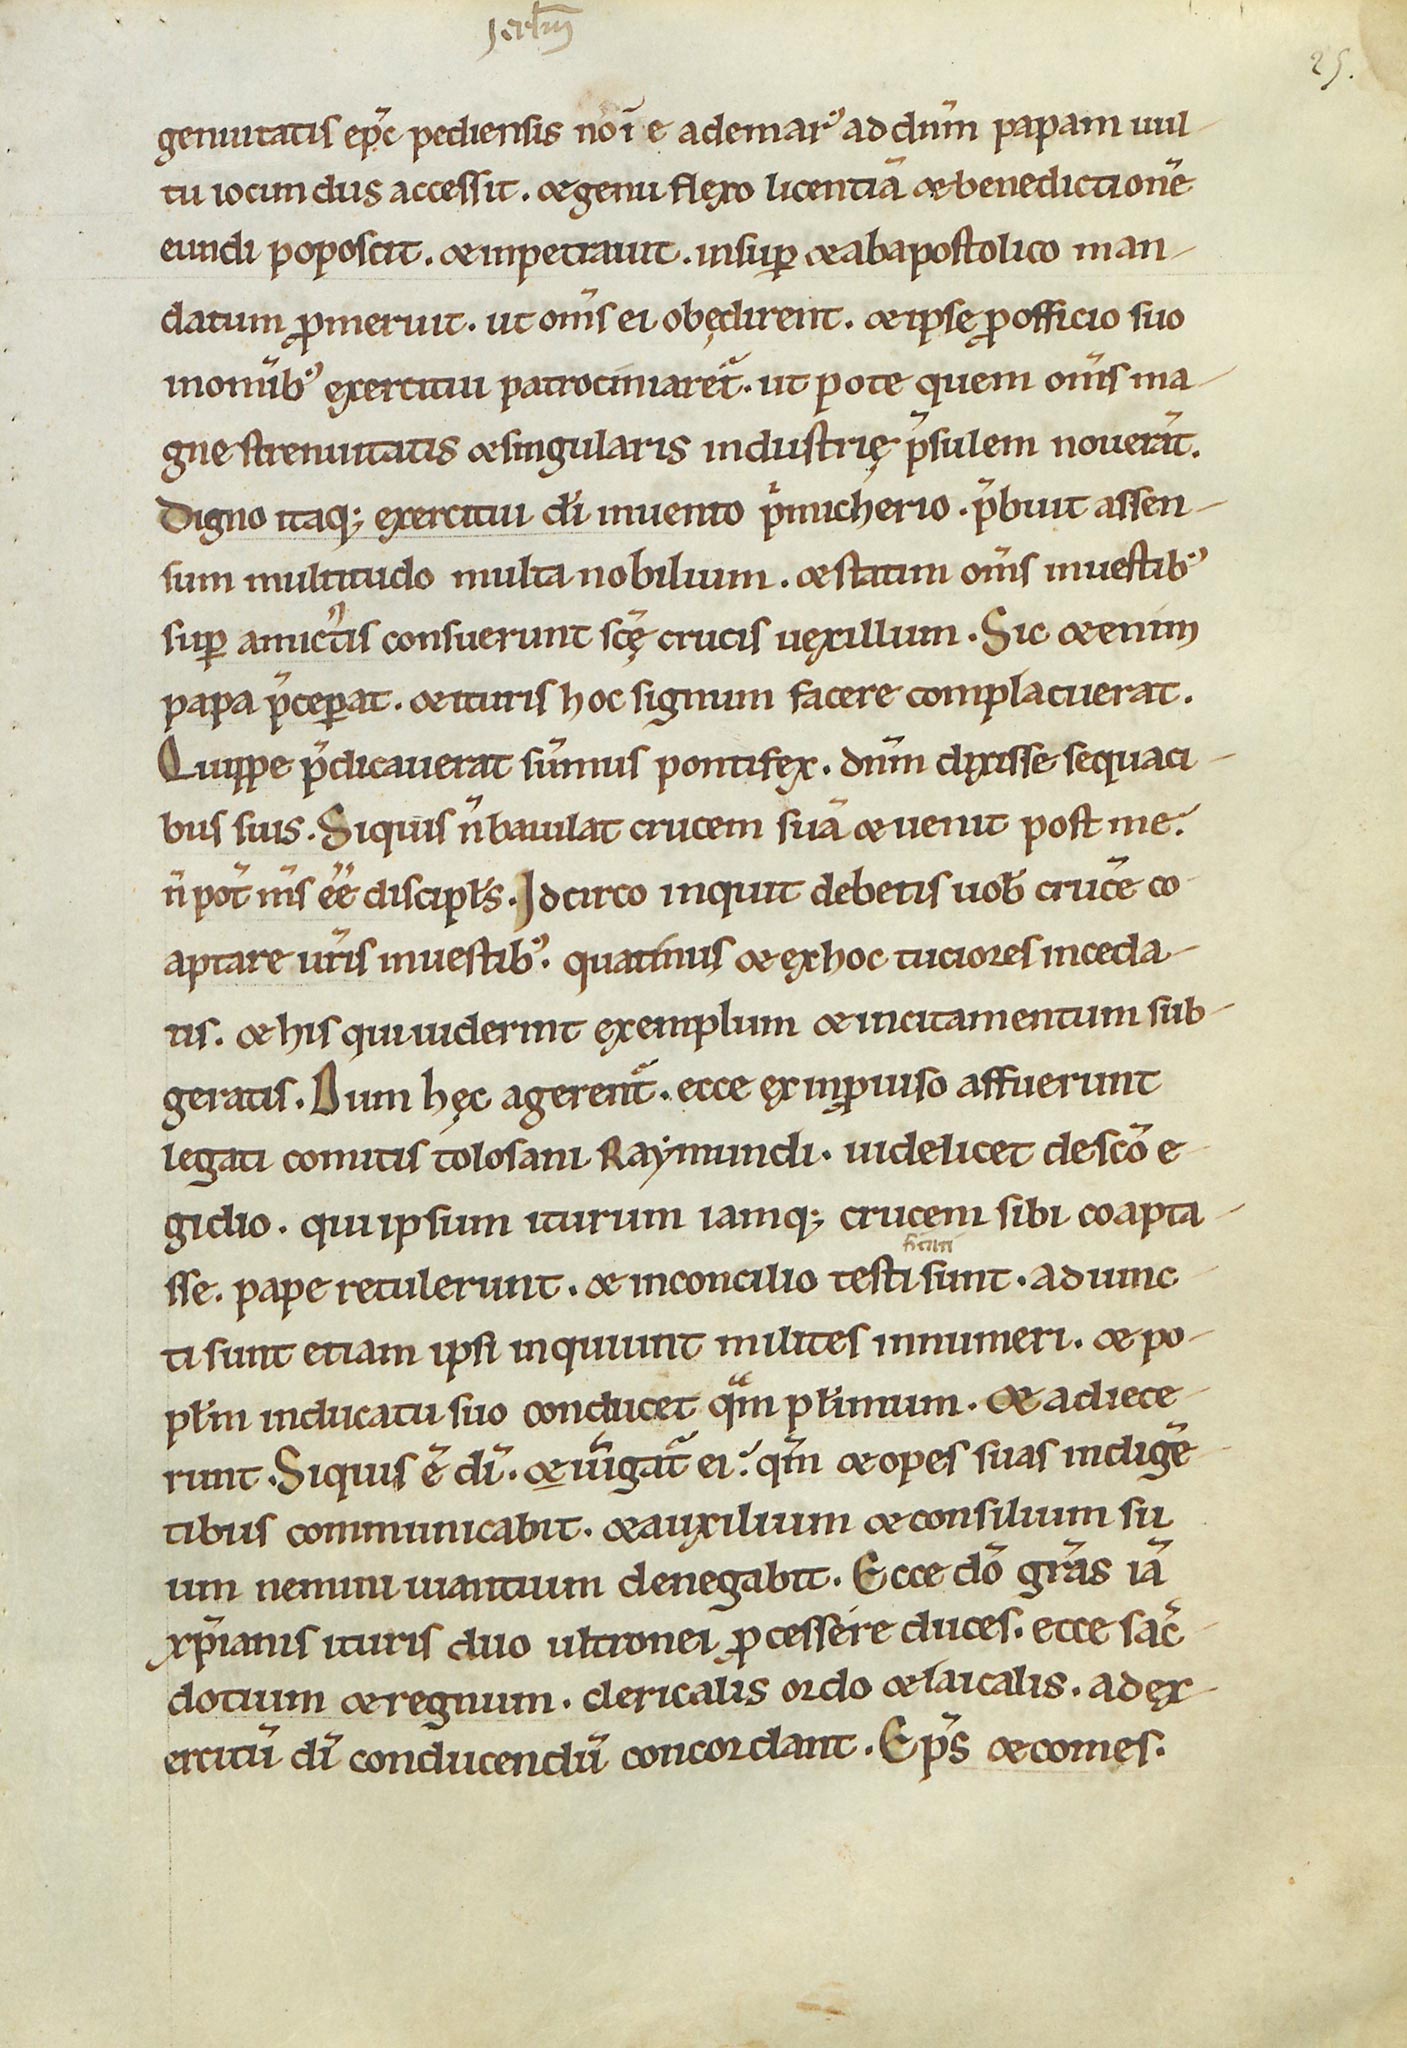 J. etlm̄
25.
genuitatis ep̄c pediensis noī e ademarꝰ ad dūm papam uul
tu iocundus accessit. & genu flexo licentiā & benedictionē
eundi poposcit. & inpetrauit. insuꝑ & ab apostolico man
datum ꝓmeruit. ut om̄s ei obędirent. & ipse ꝓ officio suo
in omīb; exercitui patrociniaret᷑. ut pote quem om̄s ma
gne strenuitatis & singularis industrię p̄sulem nouerāt.
Digno itaq; exercitui dī inuento pⁱmicherio. p̄buit assen
sum multitudo multa nobilium. & statim om̄s in uestibꝰ
suꝑ amictis consuerunt scę̄ crucis uexillum. Sic & enim
papa p̄ceꝑat. & ituris hoc signum facere complacuerat.
Quippe p̄dicauerat sūmus pontifex. dn̄m dixisse sequaci
bus suis. Siquis n̄ baiulat crucem suā & uenit post me.
n̄ pot̄ m̄s eē discipl̄s. Idcirco inquit debetis uob̄ crucē co
aptare ur̄is in uestibꝰ. quatinus & ex hoc tuciores inceda
tis. & his qui uiderint exemplum & incitamentum sub
geratis. Dum hęc agerent᷑. ecce ex inꝓuiso affuerunt
legati comitis tolosani Raymundi. uidelicet de scō e
gidio. qui ipsum iturum iamq; crucem sibi coapta
sse. pape retulerunt. & in concilio testi
ficati
sunt. adunc
ti sunt etiam ipsi inquiunt milites innumeri. & po
pl̄m in ducatu suo conducet qᵃm pl̄imum. & adiece
runt. Siquis ē dī. & iūgat᷑ ei. qm̄ & opes suas indigē
tibus communicabit. & auxilium & consilium su
um nemini uiantium denegabit. Ecce dō gr̄as iā
xp̄ianis ituris duo ultronei ꝓcessere duces. ecce sac̄
dotium & regnum. clericalis ordo & laicalis. ad ex
ercitū dī conducendū concordant. Ep̄s & comes.